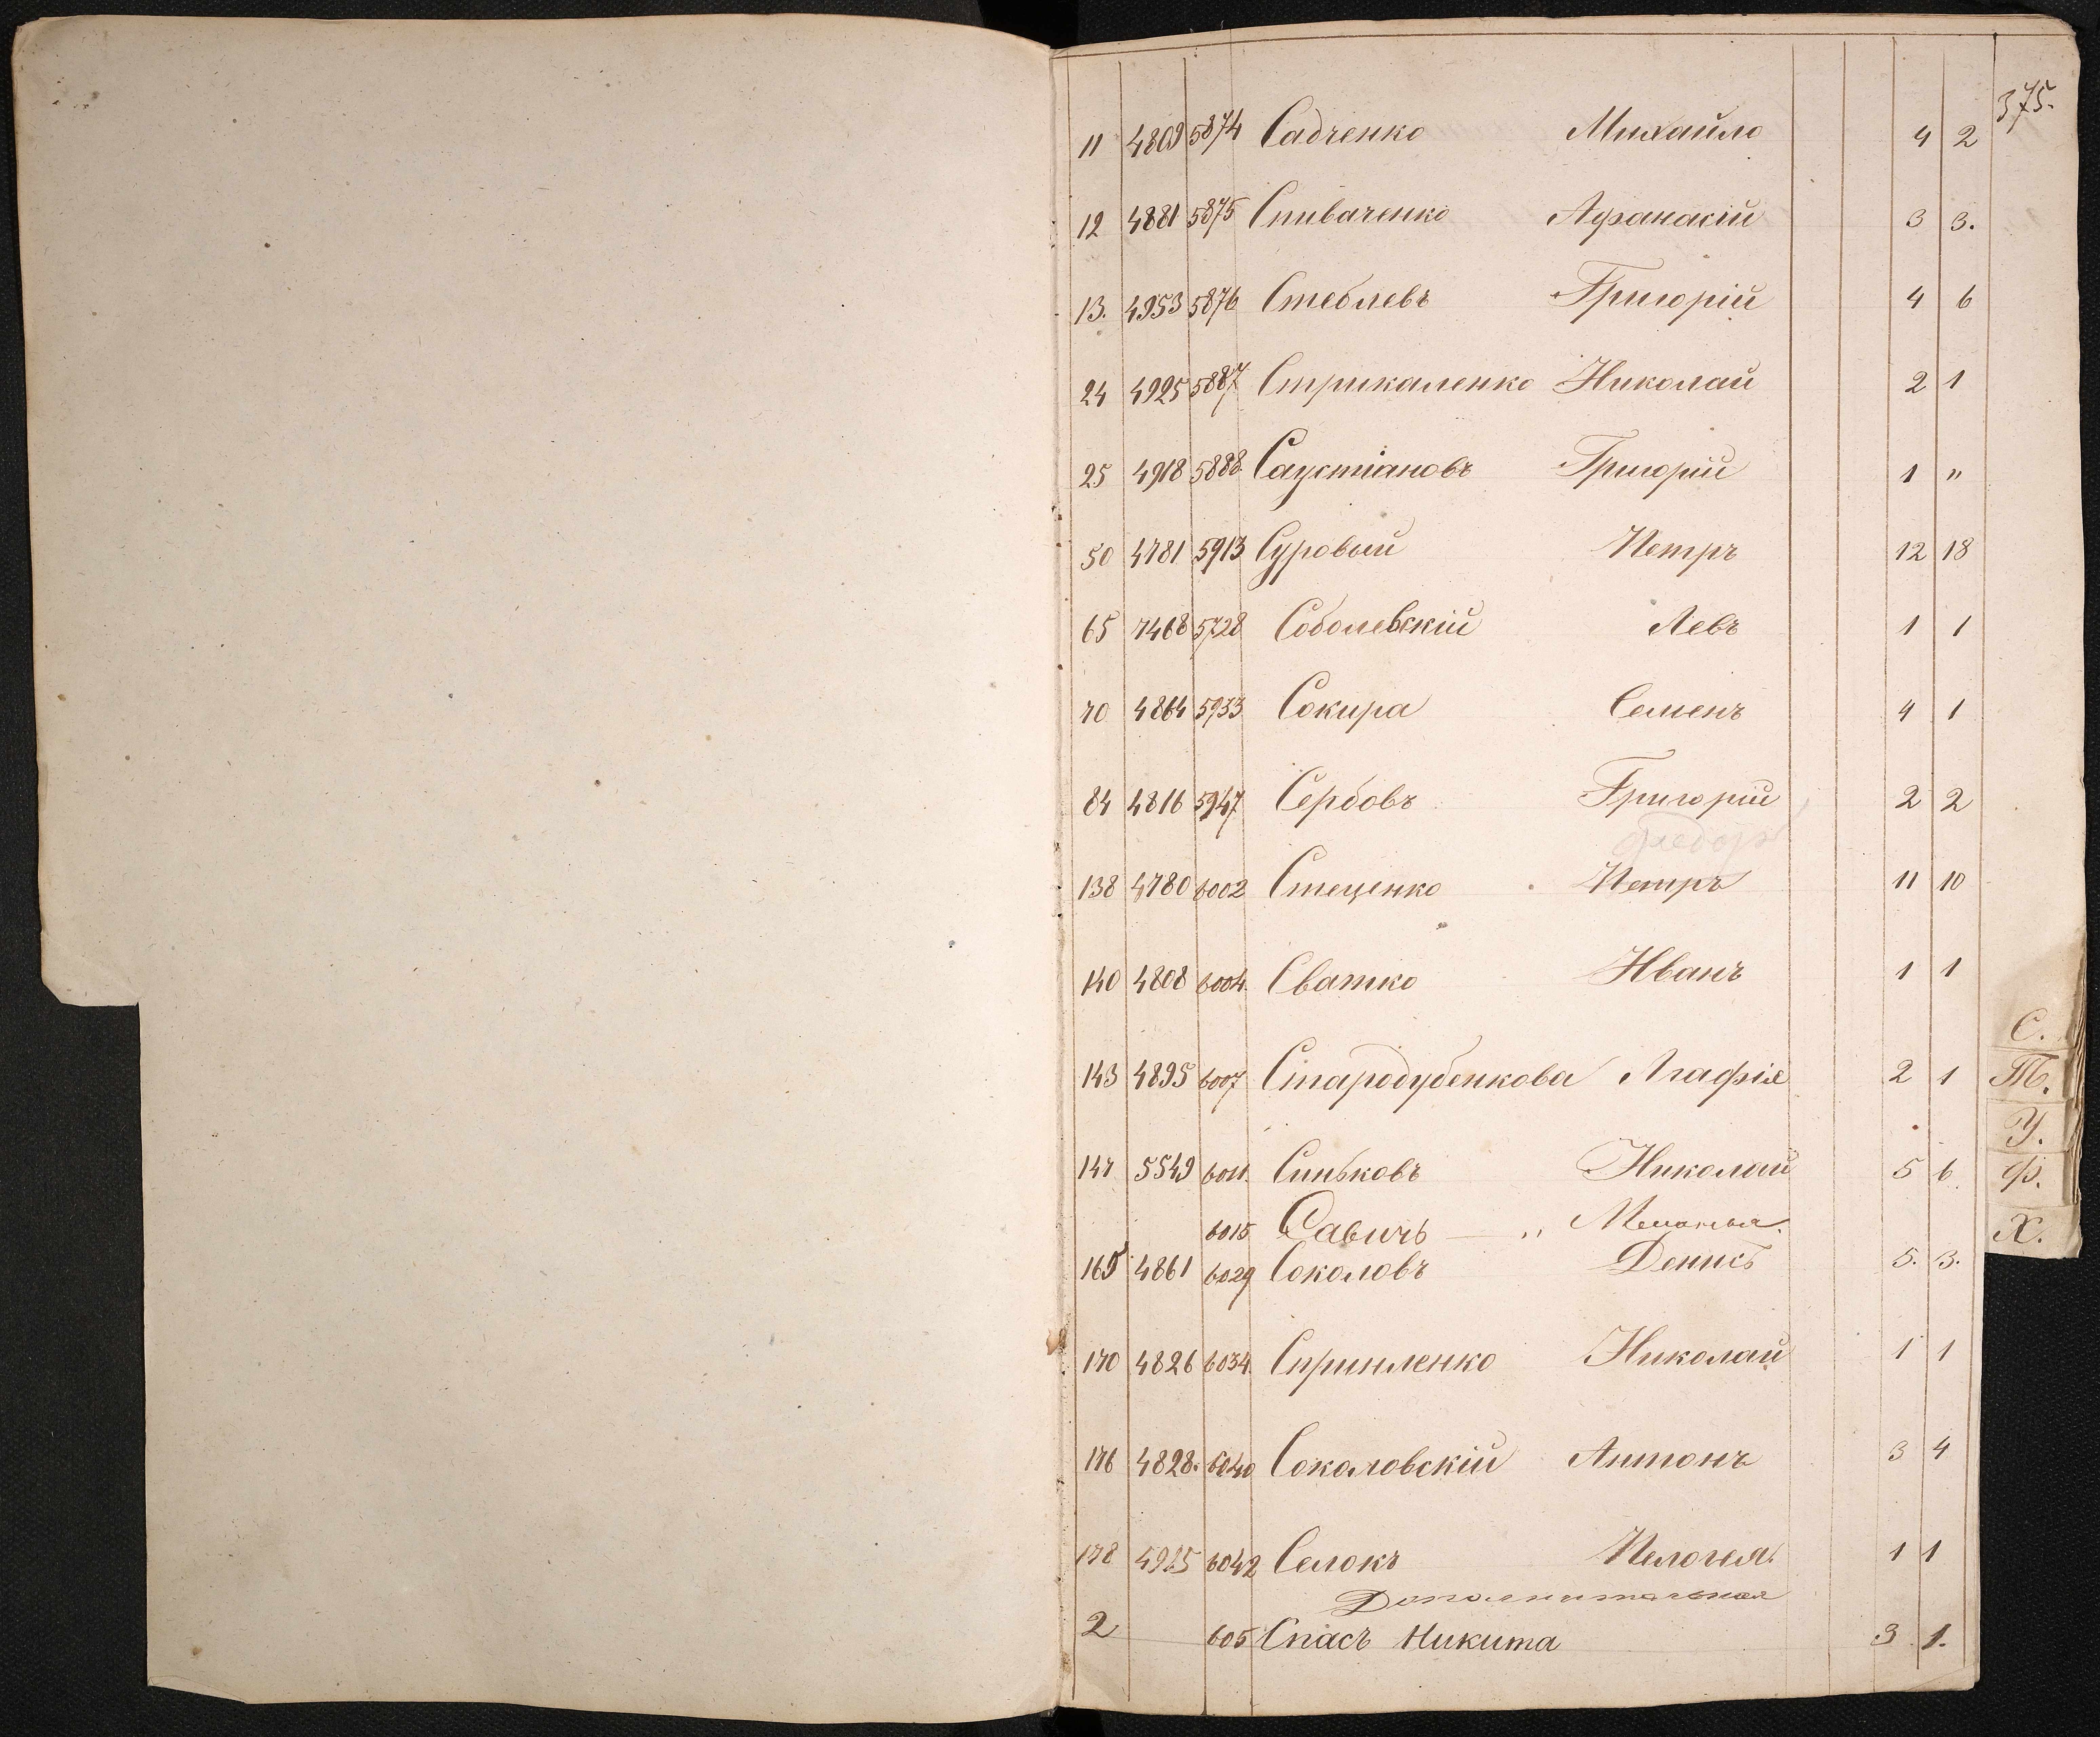 375.
11 4809 5874 Садченко Михайло 4 2
12 4881 5875 Спиваченко Афанасій 3 3.
13. 4953 5876 Стеблевъ Григорій 4 6
24 4925 5887 Стрикаленко Николай 2 1
25 4918 5888 Саустіановъ Григорій 1 "
50 4781 5913 Суровый Петръ 12 18
65 7468 5728 Соболевскій Левъ 1 1
70 4864 5933 Сокира Семенъ 4 1
84 4816 5947 Сербовъ Григорій 2 2
Федоръ
138 4780 6002 Стеценко Петръ 11 10
140 4808 6004. Сватко Иванъ 1 1
С.
143 4895 6007 Стародубенкова Агафія 2 1
Т.
У.
147 5549 6011. Синьковъ Николай 5 6
Ф.
6015 Савичъ — "
Х.
165 4861 6029 Соколовъ Денисъ 5. 3.
170 4826 6034. Николай 1 1
176 4828. 6040 Соколовскій Антонъ 3 4
178 6042 Селокъ Пелогея 1 1
Дополнительная
2 605 Спасъ Никита 3 1.